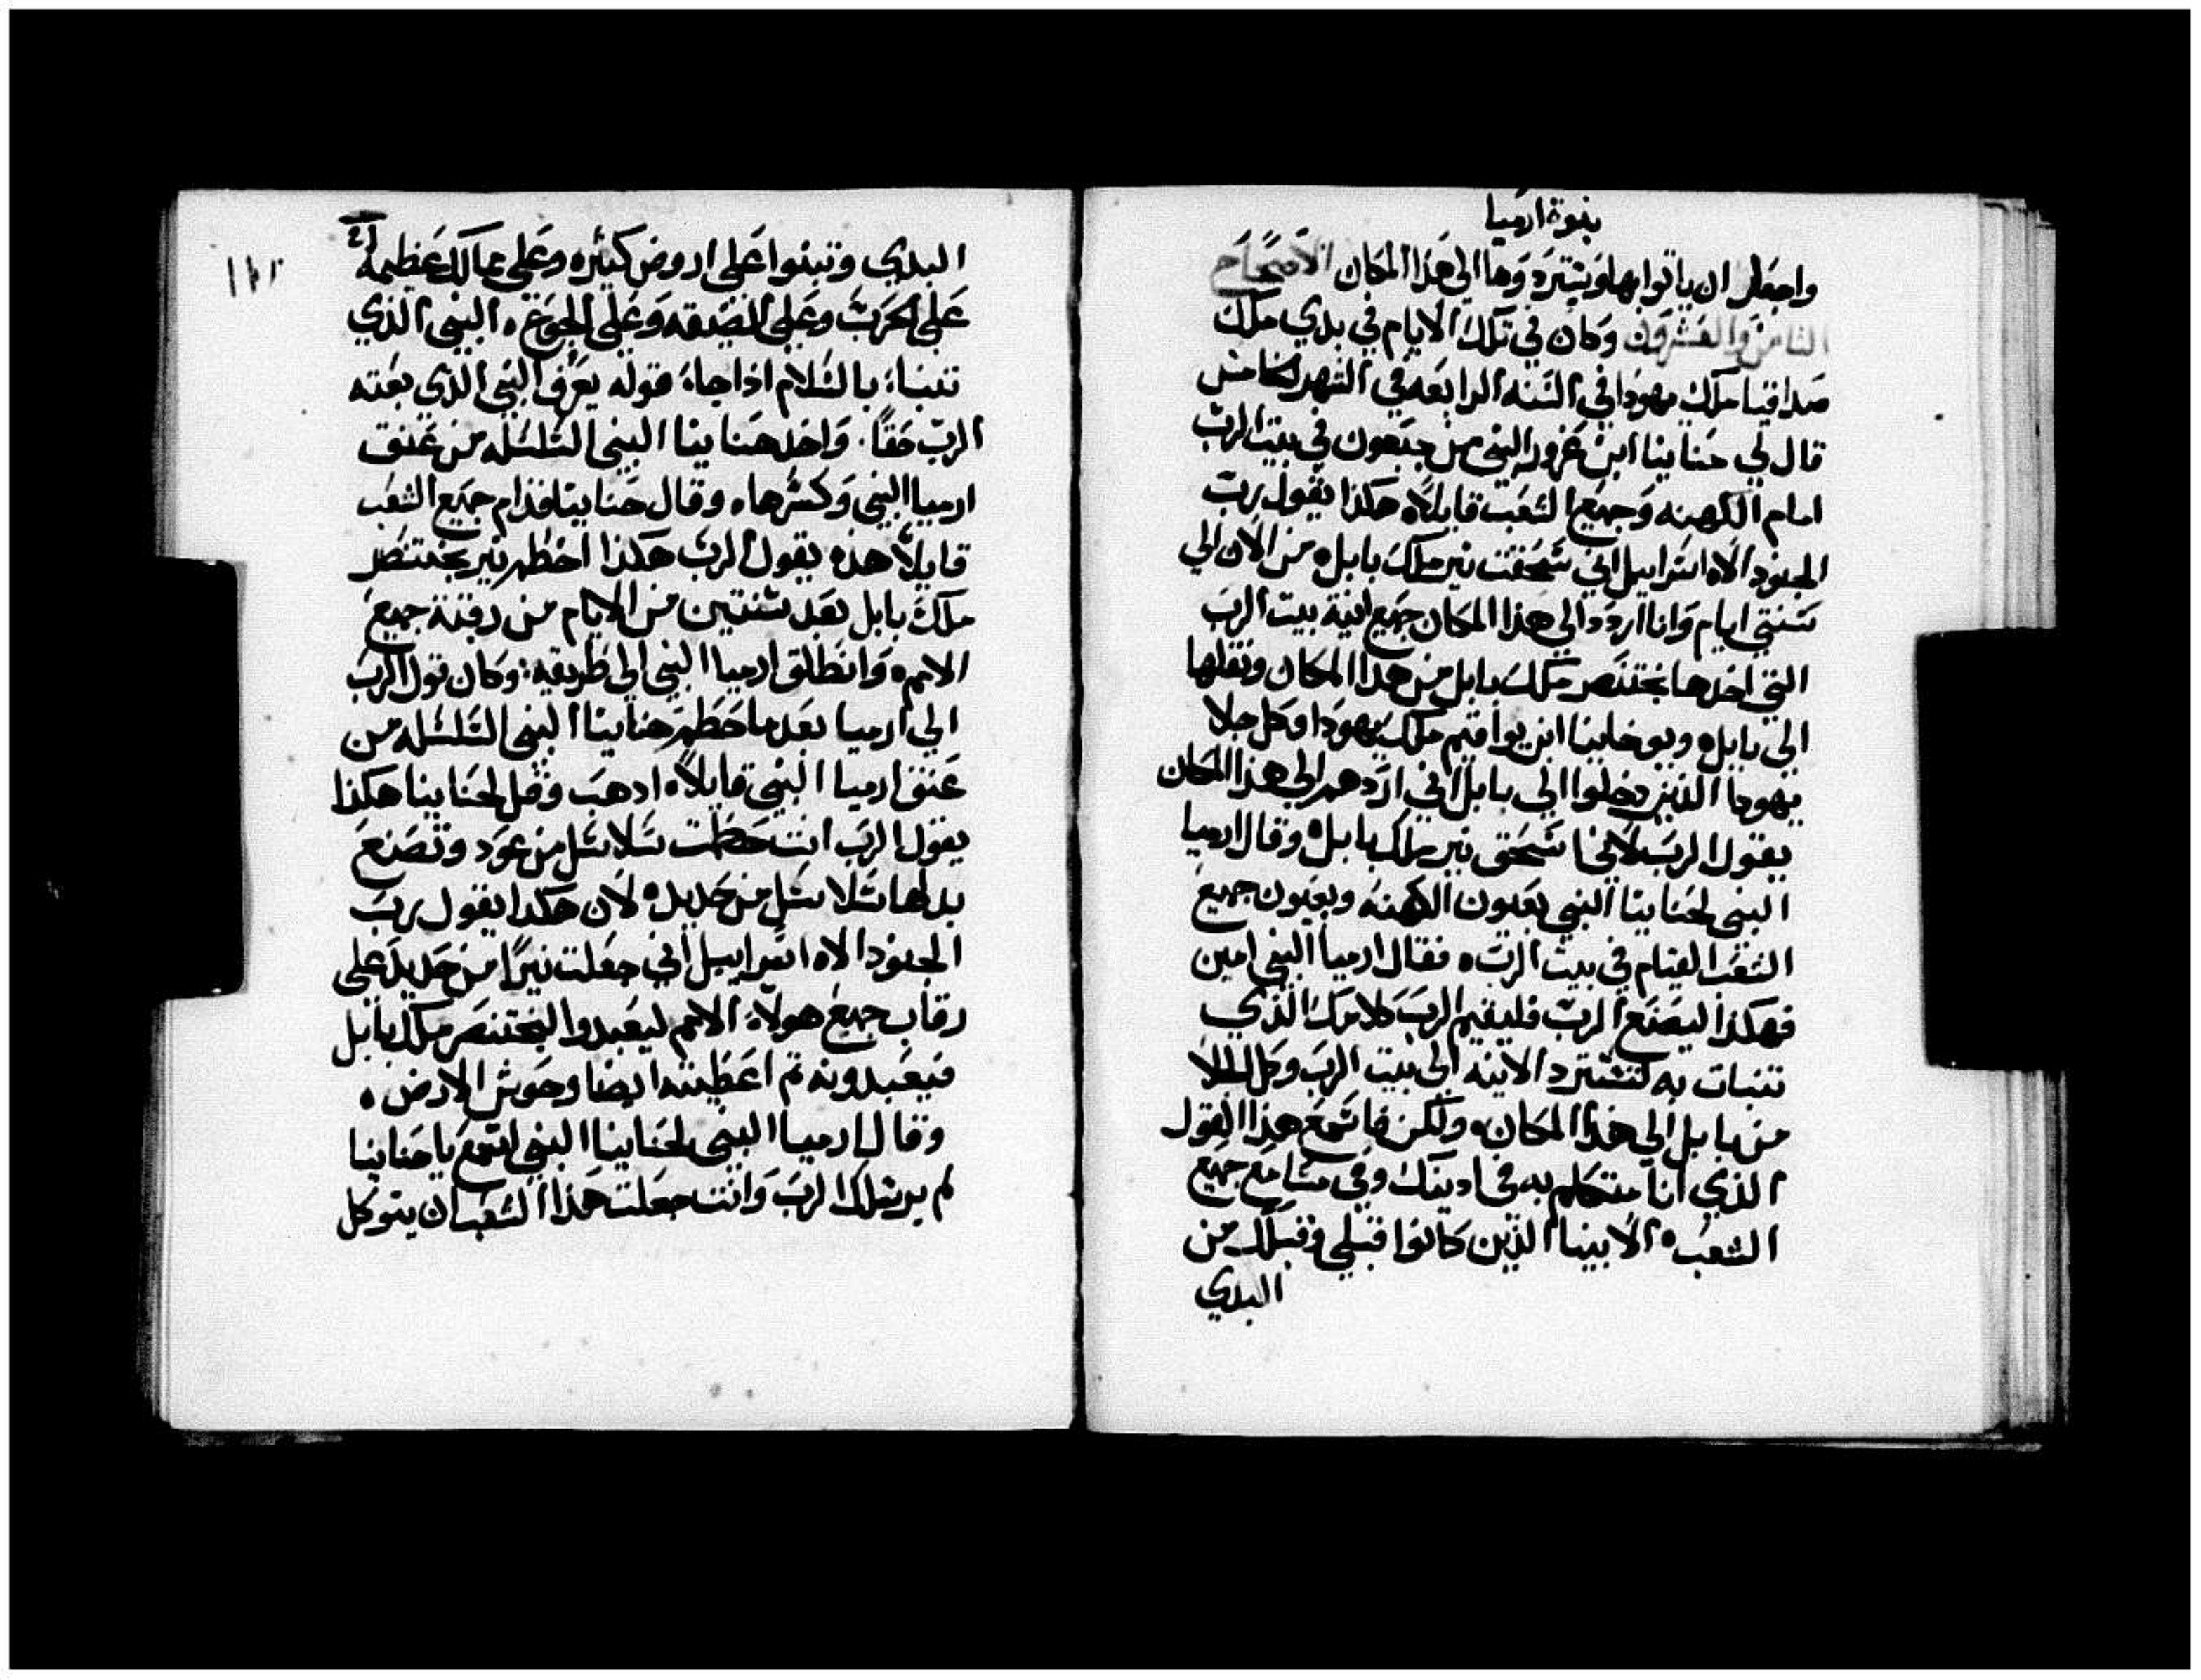 بنوة ارميا
واجعل ان ياتوا بها وتسترد وها الى هذا المكان الاصحاح
الثامن والعشرون وكان في تلك الايام في بدي ملك
صداقيا ملك يهودا في السنه الرابعه في الشهر الخامس
قال لي حنانيا ابن عزور النبي من جبعون في بيت الرب
امام الكهنه وجميع الشعب قايلاً هكذا يقول رب
الجنود الاه اسراييل اني سحقت نير ملك بابل من الان الي
سنتي ايام وانا اردد الي هذا المكان جميع انية بيت الرب
التي اخدها بختنصر ملك بابل من هدا المكان ونقلها
الى بابل ويوخانيا ابن يواقيم ملك يهودا وكل جلا
يهودا الذين دخلوا الى بابل اني اردهم الى هذا المكان
يقول الرب لاني اسحق نير ملك بابل وقال ارميا
النبي لحنانيا النبي بعيون الكهنه وبعيون جميع
الشعب القيام في بيت الرب فقال ارميا النبي امين
فهكذا ليصنع الرب فليقيم الرب كلامك الذي
تنبات به لتسترد الانيه الى بيت الرب وكل الجلا
من بابل الى هذا المكان ولكن فاسمع هذا القول
الذي انا متكلم به في ادينك وفي مسامع جميع
الشعب الانبيا الذين كانوا قبلي وقبلك من
البدي
البدي وتبنوا على اروض كثيره وعلى ممالك عظيمه
على الحرب وعلى الضيقه وعلى الجوع النبي الذي
تنباء بالسلام اذا جاء قوله يعرف النبي الذي بعته
الرب حقاً واخد حنانيا النبي السلسله من عنق
ارميا النبي وكسرها وقال حنانيا قدام جميع الشعب
قايلاً هذه يقول الرب هكذا احطم نير بختنصر
ملك بابل بعد سنتين من الايام من رقبة جميع
الامم وانطلق ارميا النبي الى طريقه وكان قول الرب
الي ارميا بعد ما حطم حنانيا النبي السلسله من
عنق ارميا النبي قايلاً ادهب وقل لحنانيا هكذا
يقول الرب انت حطمت سلاسل من عود وتصنع
بدلها سلاسل من حديد لان هكدا يقول رب
الجنود الاه اسراييل اني جعلت نيرًا من حديد على
رقاب جميع هولاء الامم ليعبدوا البختنصر ملك بابل
فيعبدونه ثم اعطيته ايضا وحوش الارض
وقال ارميا النبي لحنانيا النبي اسمع يا حنانيا
لم يرسلك الرب وانت جعلت هذا الشعب ان يتوكل